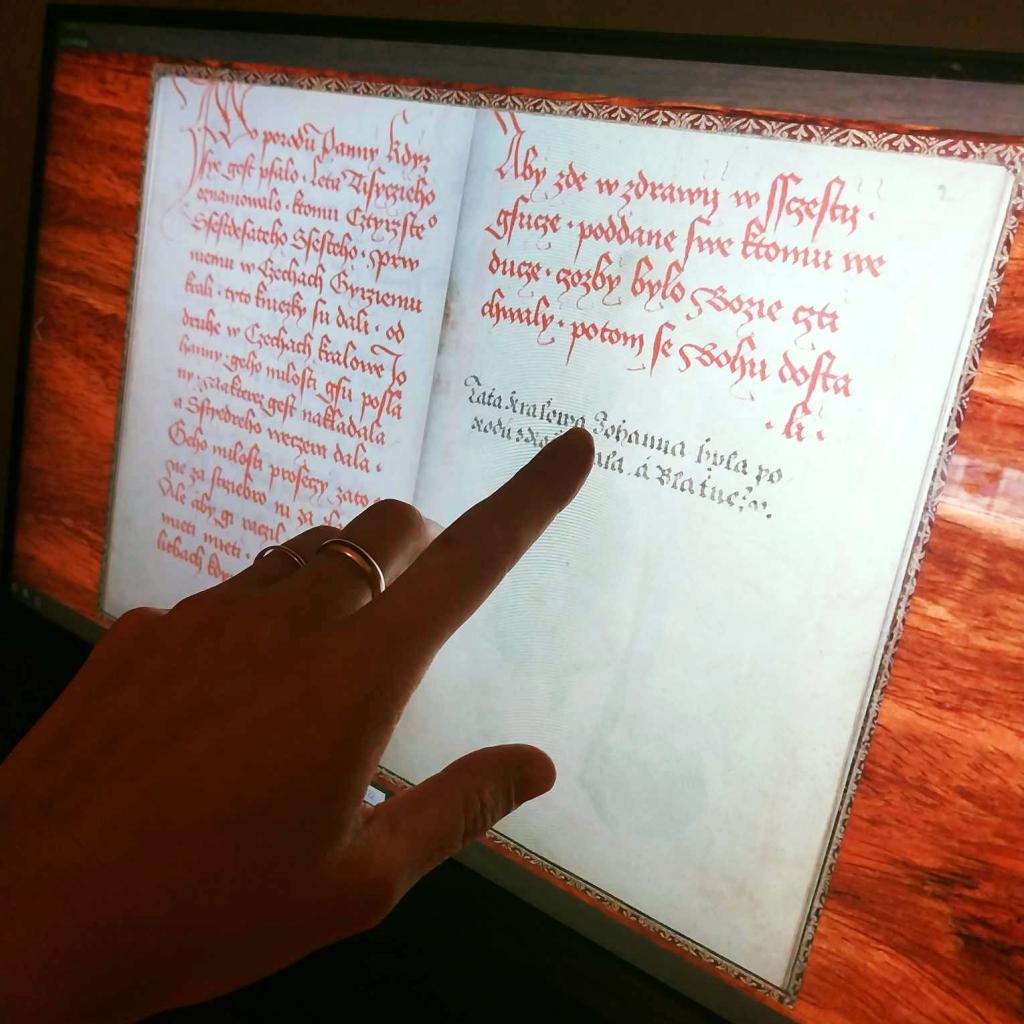 Po porodu Panny kdyz
sye gest psalo · leta Tisyczieho
oznamowalo · ktomu Cztyrzste°
Ssestdesateho Ssesteho · Prw
niemu w Czechach Gyrziemu
krali · tyto kniezky su dali · od
druhe w Czechach kralowe Jo
hanny · geho milosti gsu posla
ny · nakterez gest nakladala
a Sstiedrcho weczera dala ·
Geho milosti proseczy zato
ne za striebro ni za
Ale aby gi raczil
mieti mieti ·
litbach kdyz
Aby zde w zdrawij w Ssczesty ·
gsucze · poddane swe ktomu we
ducze · czozby bylo Bozie czti
chwaly · potom se Bohu dosta
· li ·
Tata Kralowa Johanna byla po
rodu z Ro ala · a Blatucze.